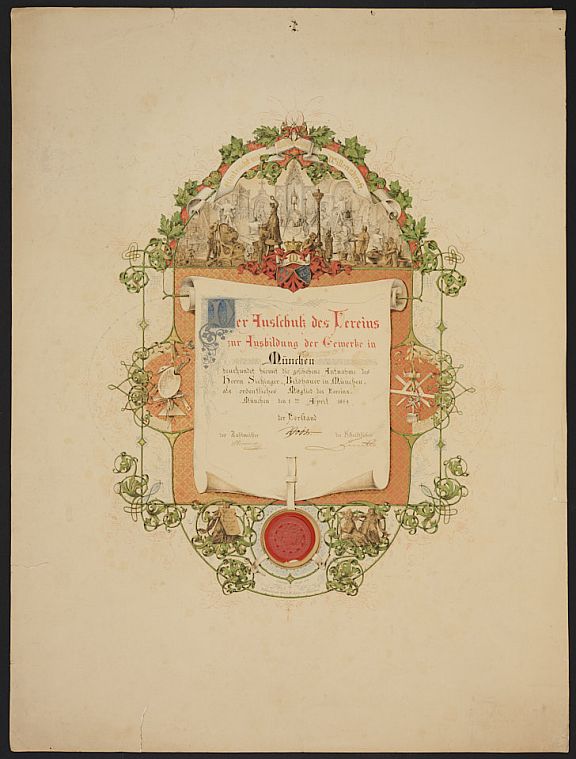 Der Ausschuß des Vereins
zur Ausbildung der Gewerke in
München
beurkundet hiemit die geschehene Aufnahme des
Herrn Sickinger, Bildhauer in München,
als ordentliches Mitglied des Vereins.
München den 1ten April 1864
der Vorstand
der Kassier
der Schriftführer